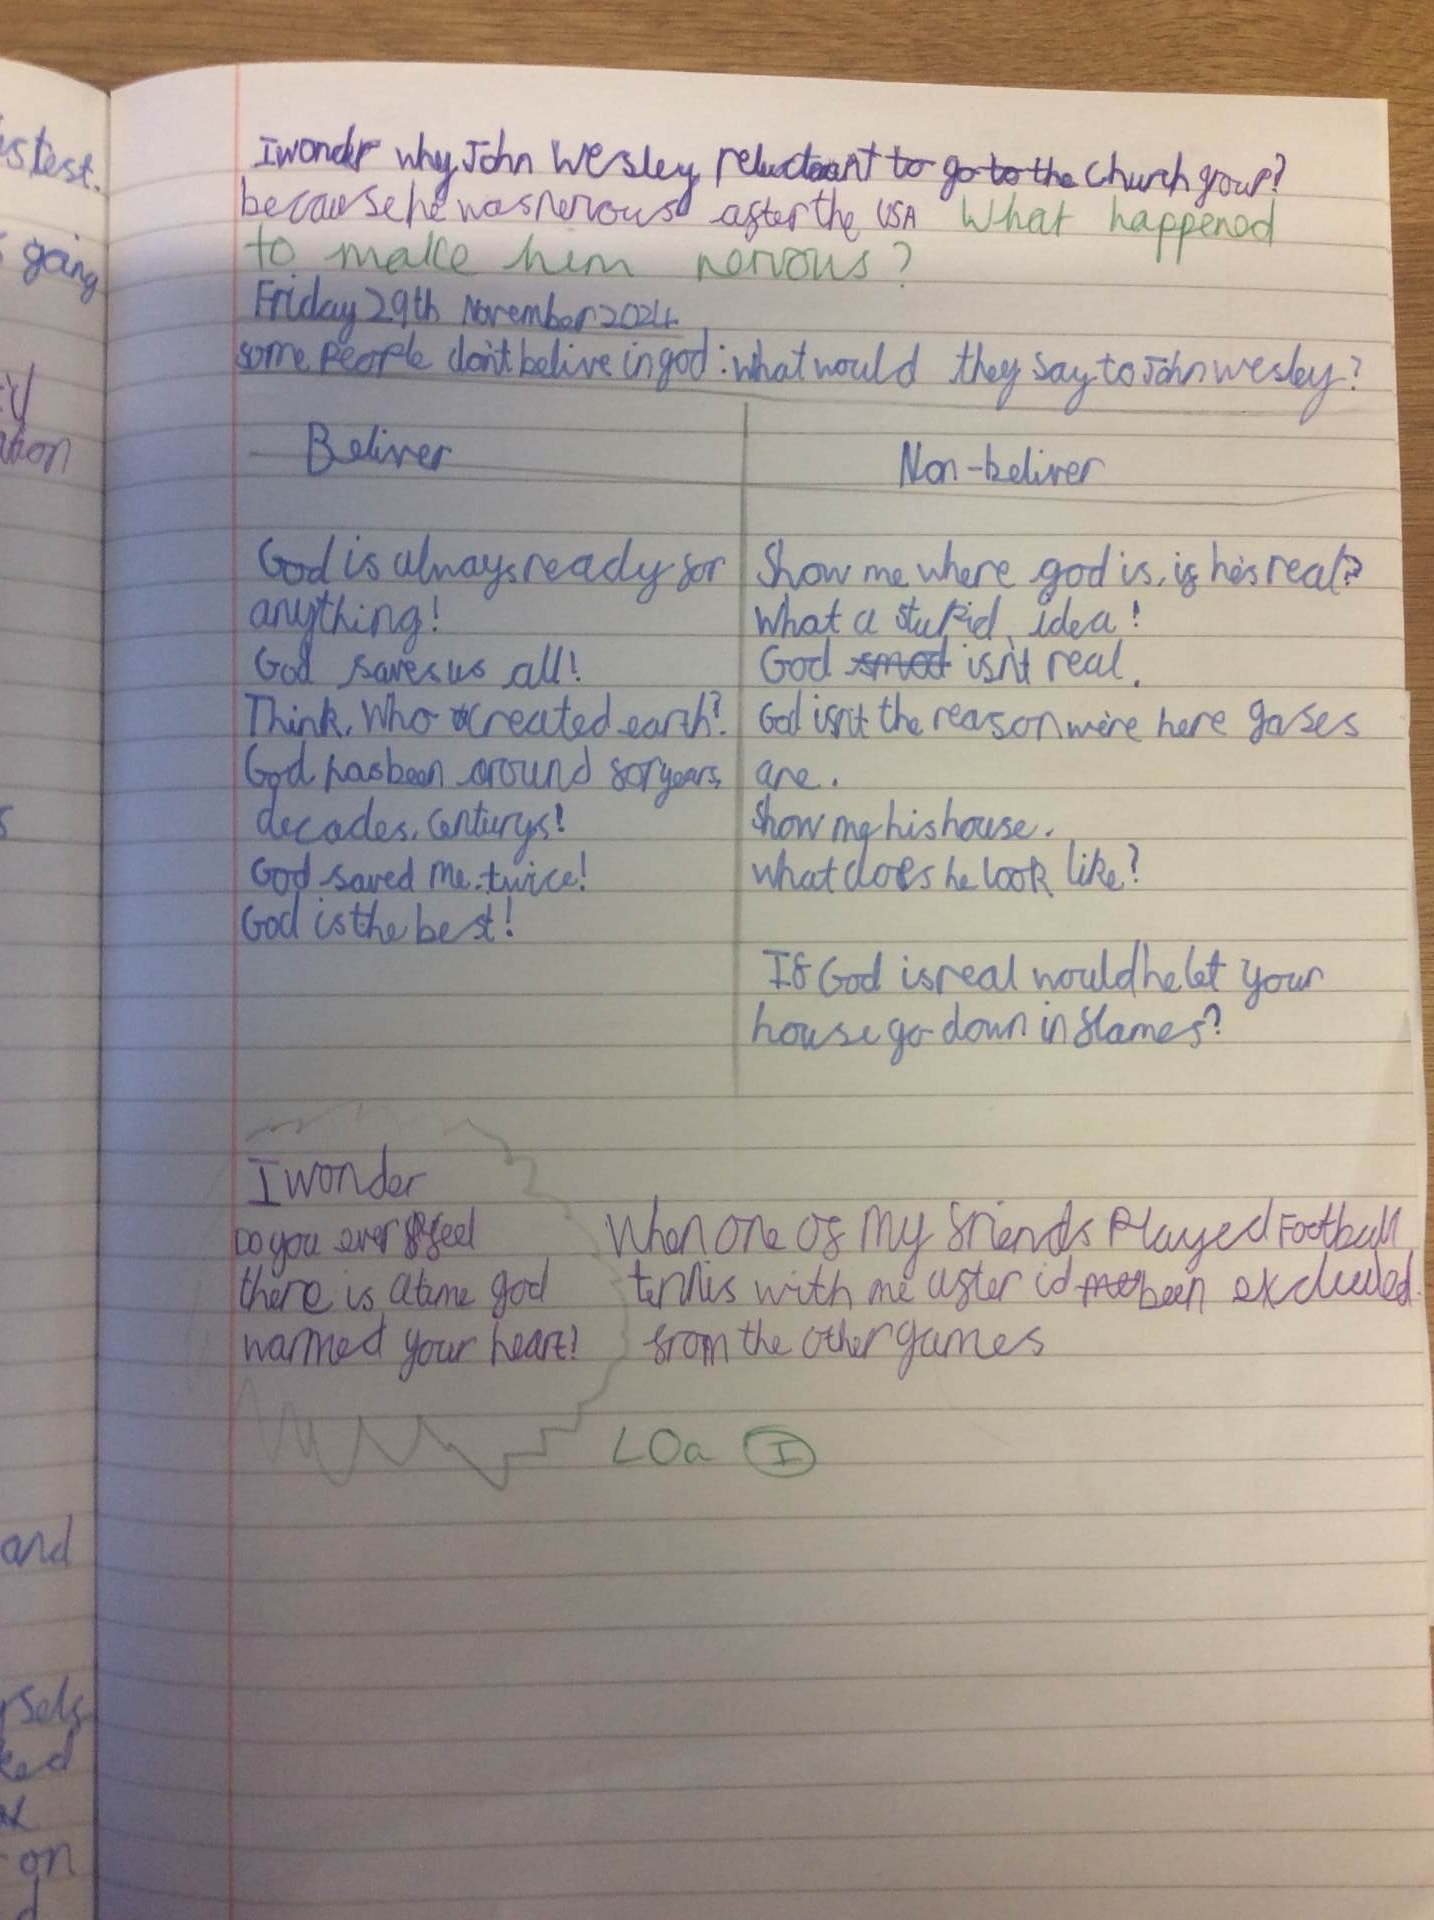 stest.
going
ation
and
ked
on
d
I wonder why John Wesley reluctant to go to the church group?
because he was nervous after the USA What happened
to make him nervous?
Friday 29th November 2024
some people don't belive in god: what would they say to John Wesley?
Beliver
Non-beliver
God is always ready for
anything!
God saves us all!
Think, Who created earth?
God has been around for years,
decades, Centurys!
God saved me twice!
God is the best!
Show me where god is, if he's real?
What a stupid idea!
God isn't real.
God isn't the reason we're here gases
are.
Show my his house.
what does he look like?
If God is real would he let your
house go down in flames?
I wonder
Do you ever feel
there is a time god
warmed your heart?
When one of my friends Played Football
tennis with me after id been excluded.
from the other games
LOa I